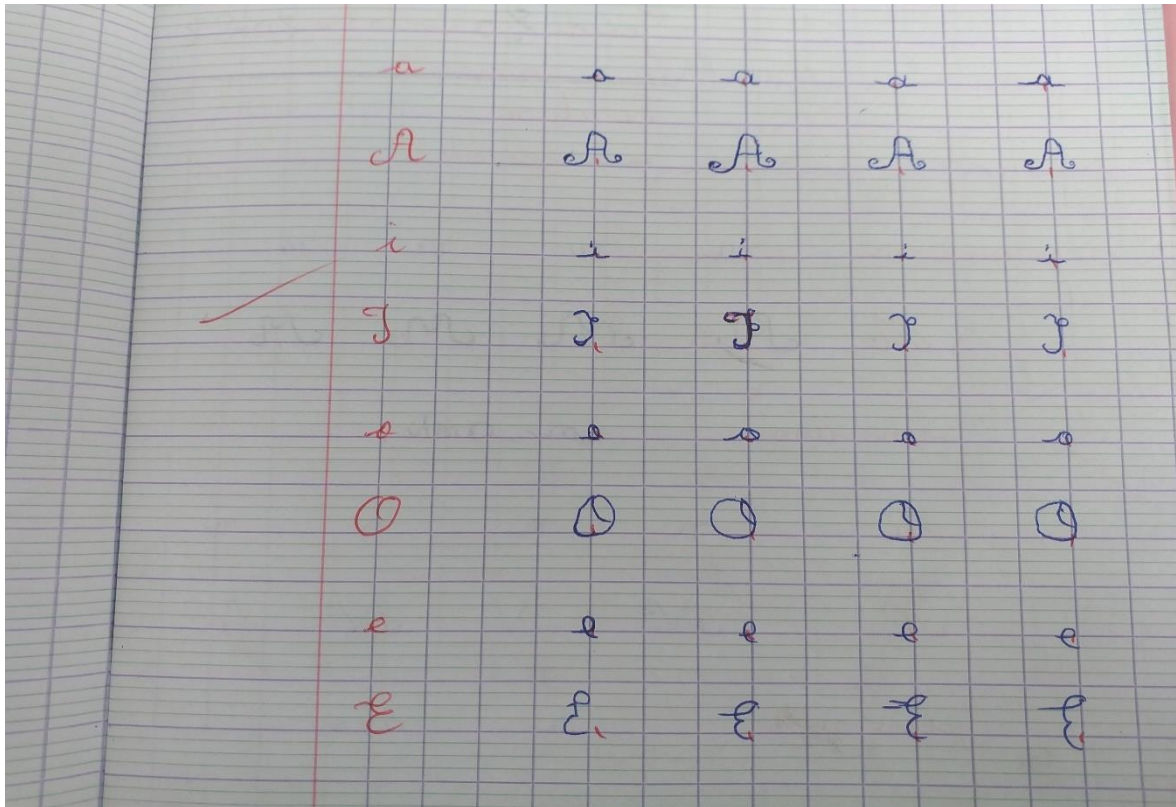 a a a a a
A A A A A
i i i i i
I I I I I
o o o o o
O O O O O
e e e e e
E E E E E